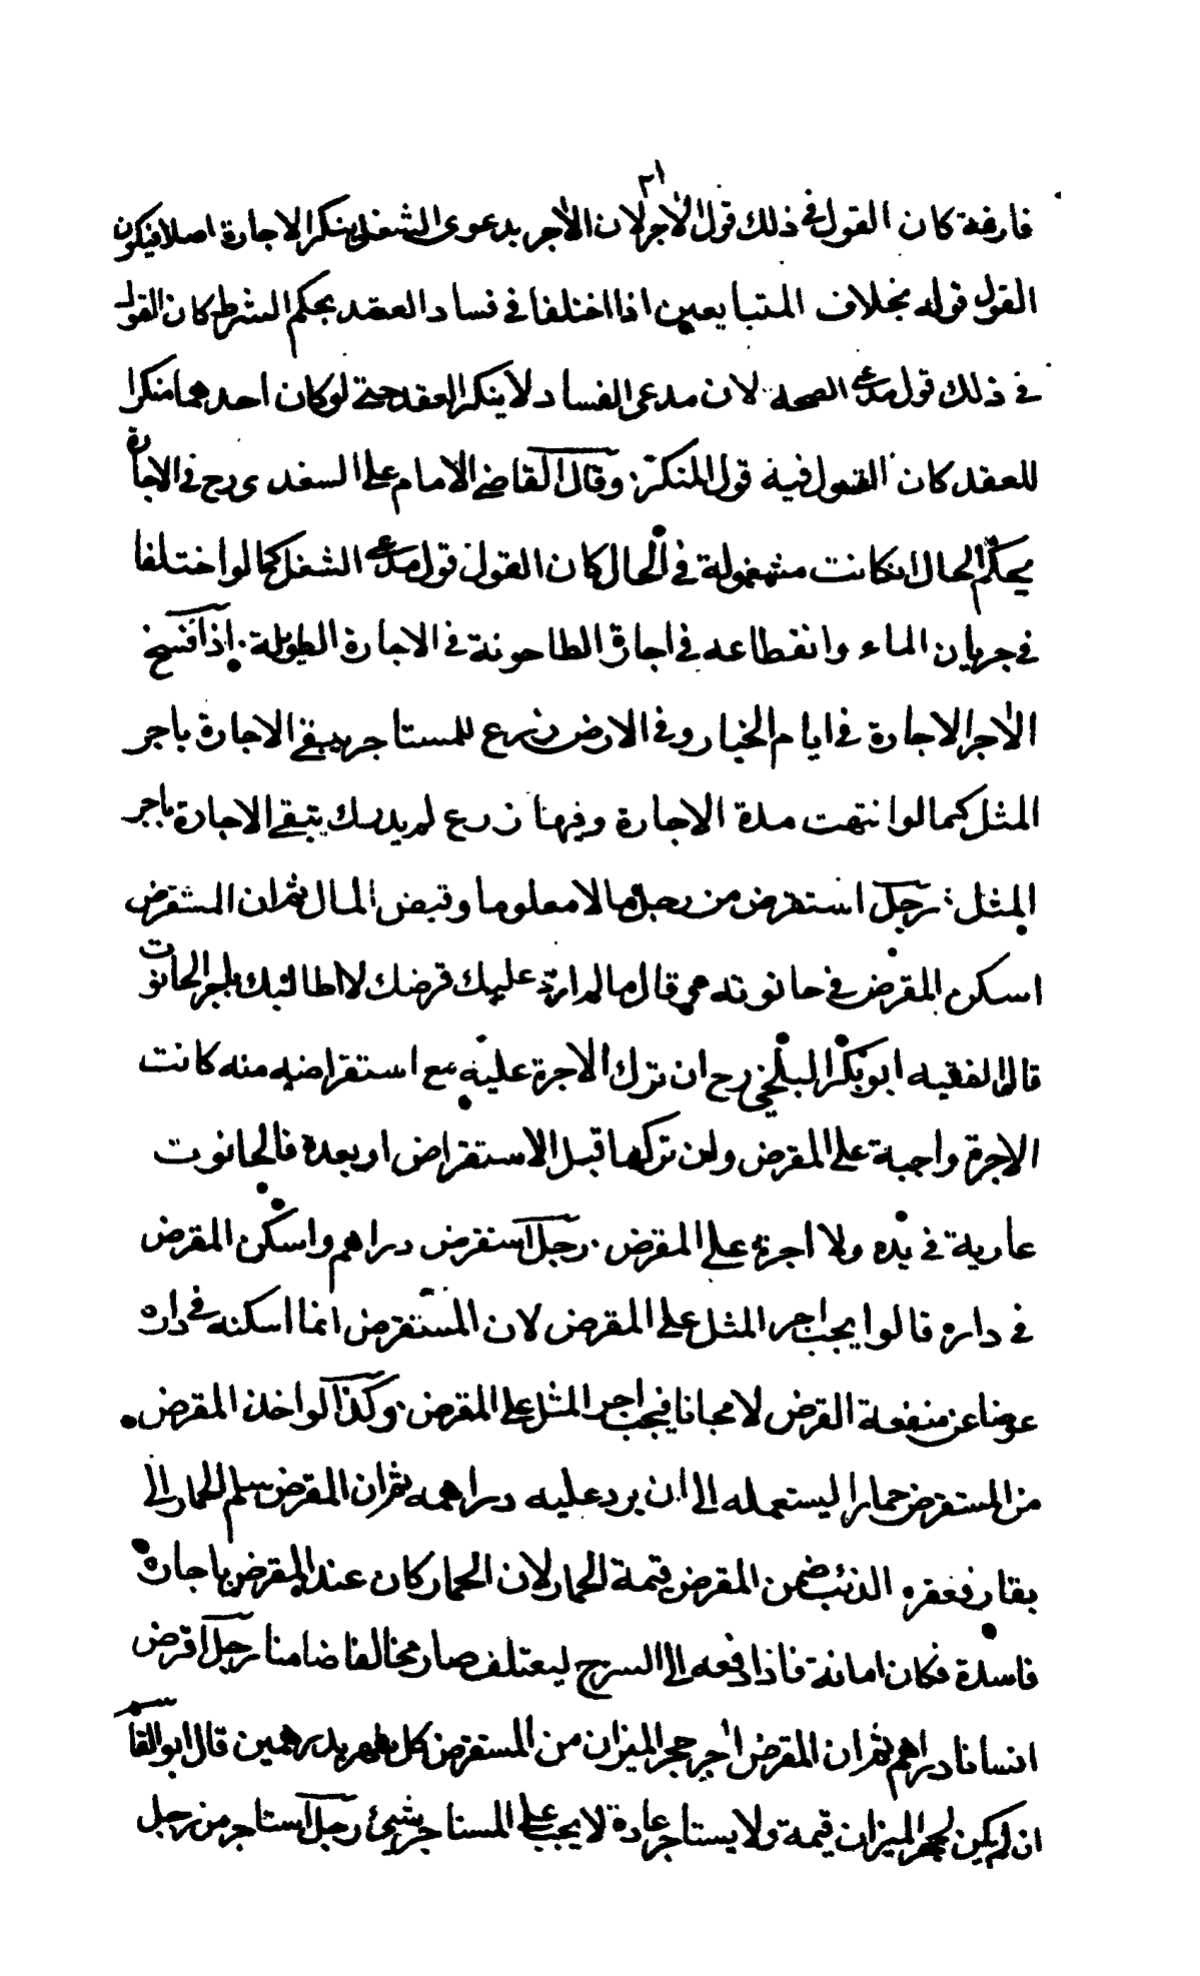 ٣١
فارغة كان القول في ذلك قول الآجر لان الآجر بدعوى الشغل ينكر الاجارة اصلا فيكون
القول قوله بخلاف المتبايعين اذا اختلفا في فساد العقد بحكم الشرط كان القول
في ذلك قول مدعى الصحة لان مدعى الفساد لا ينكر العقد حتى لو كان احدهما منكرا
للعقد كان القول فيه قول المنكر وقال القاضى الامام على السغدى رح في الاجارة
يحكم الحال ان كانت مشغولة في الحال كان القول قول مدعى الشغل كما لو اختلفا
في جريان الماء وانقطاعه في اجارة الطاحونة في الاجارة الطويلة اذا فسخ
الآجر الاجارة في ايام الخيار وفي الارض زرع للمستاجر يبقى الاجارة باجر
المثل كما لو انتهت مدة الاجارة وفيها زرع لم يدرك يتبقى الاجارة باجر
المثل رجل استقرض من رجل مالا معلوما وقبض المال ثم ان المستقرض
اسكن المقرض في حانوته وقال ما لم ارد عليك قرضك لا اطالبك باجر الحانوت
قال الفقيه ابو بكر البلخي رح ان ترك الاجرة عليه مع استقراضه منه كانت
الاجرة واجبة على المقرض ولن تركها قبل الاستقراض او بعده فالحانوت
عارية في يده ولا اجرة على المقرض رجل استقرض دراهم واسكن المقرض
في داره قالوا يجب اجر المثل على المقرض لان المستقرض انما اسكنه في داره
عوضا عن منفعة القرض لا مجانا فيجب اجر المثل على المقرض وكذا لو اخذ المقرض
من المستقرض حمارا ليستعمله الى ان يرد عليه دراهمه ثم ان المقرض سلم الحمار الى
بقار فعقره الذئب ضمن المقرض قيمة الحمار لان الحمار كان عند المقرض باجارة
فاسدة فكان امانة فاذا دفعه الى السرح ليعتلف صار مخالفا ضامنا رجل اقرض
انسانا دراهم ثم ان المقرض اجر حجر الميزان من المستقرض كل شهر بدرهمين قال ابو القاسم
ان لم يكن لحجر الميزان قيمة ولا يستاجر عادة لا يجب على المستاجر شيئ رجل استاجر من رجل